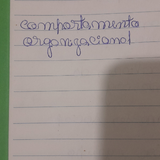 comportamento
organizacional